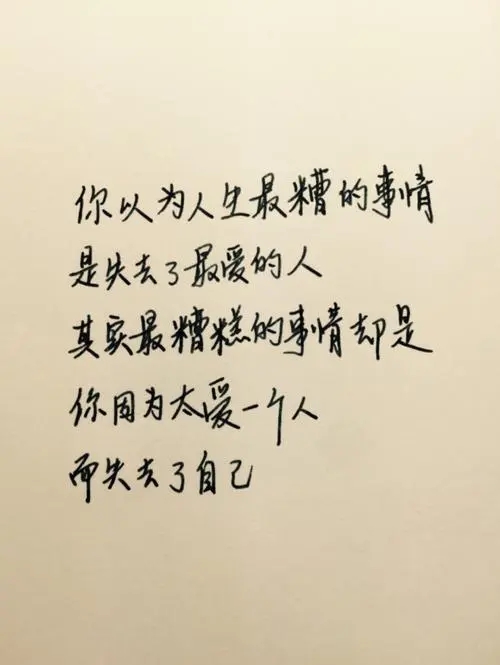 你以为人生最糟的事情
是失去了最爱的人
其实最糟糕的事情却是
你因为太爱一个人
而失去了自己